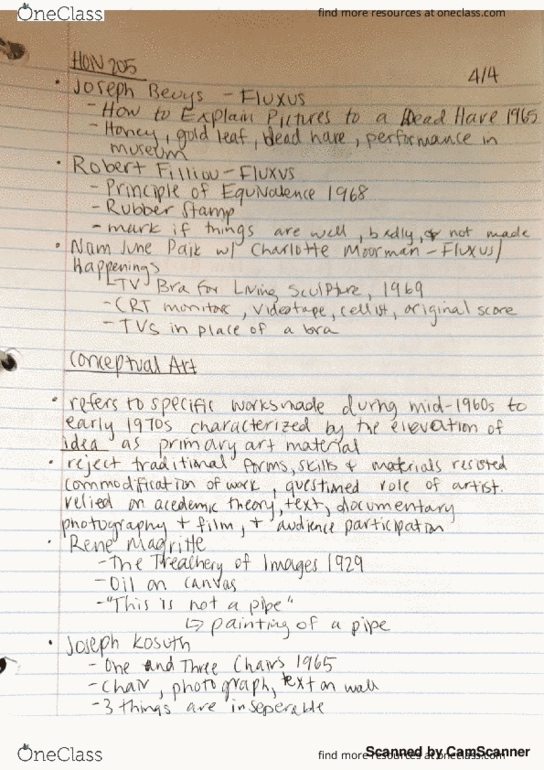 OneClass
find more resources at oneclass.com
HON 205
4/4
• Joseph Beuys - Fluxus
- How to Explain Pictures to a Dead Hare 1965
- Honey, gold leaf, dead hare, performance in
museum
• Robert Filliou - Fluxus
- Principle of Equivalence 1968
- Rubber Stamp
- mark if things are well, badly, or not made
• Nam June Paik w/ Charlotte Moorman - Fluxus/
Happenings
- TV Bra for Living Sculpture, 1969
- CRT monitors, videotape, cellist, original score
- TVs in place of a bra
Conceptual Art
• refers to specific works made during mid-1960s to
early 1970s characterized by the elevation of
idea as primary art material
• reject traditional forms, skills & materials resisted
commodification of work, questioned role of artist.
relied on academic theory, text, documentary
photography + film, + audience participation
• Rene Magritte
- The Treachery of Images 1929
- Oil on canvas
- "This is not a pipe"
↳ painting of a pipe
• Joseph Kosuth
- One and Three Chairs 1965
- Chair, photograph, text on wall
- 3 things are inseperable
OneClass
find more resources at oneclass.com
Scanned by CamScanner